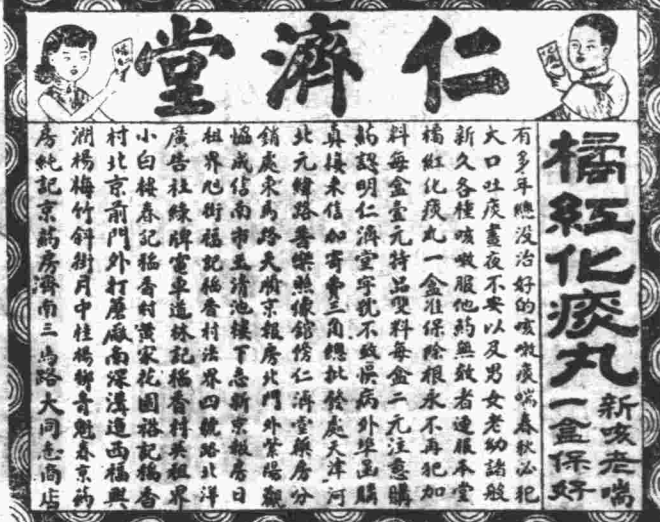 仁濟堂
橘紅化痰丸
新咳老喘
一盒保好
有多年總没治好的咳嗽痰喘春秋必犯
大口吐痰晝夜不安以及男女老幼諸般
新久各種咳嗽服他药無效者連服本堂
橘紅化痰丸一盒准保除根永不再犯加
料每盒壹元特品雙料每盒二元注意購
药認明仁濟堂字號不致悞病外埠函購
真接来信加寄費三角總批發處天津河
北元緯路善樂照像舘傍仁濟堂藥房分
銷處東馬路天晴京報房北門外紫陽觀
恊成信南市玉清池樓下志新京報房日
租界旭街福記稻香村法界四號路北洋
廣告社綠牌電車道林記稻香村英租界
小白樓春記稻香村黃家花園裕記稻香
村北京前門外打蘑廠南深溝道西福興
潤楊梅竹斜街月中桂楊街青魁春京药
房純記京药房濟南三馬路大同商店